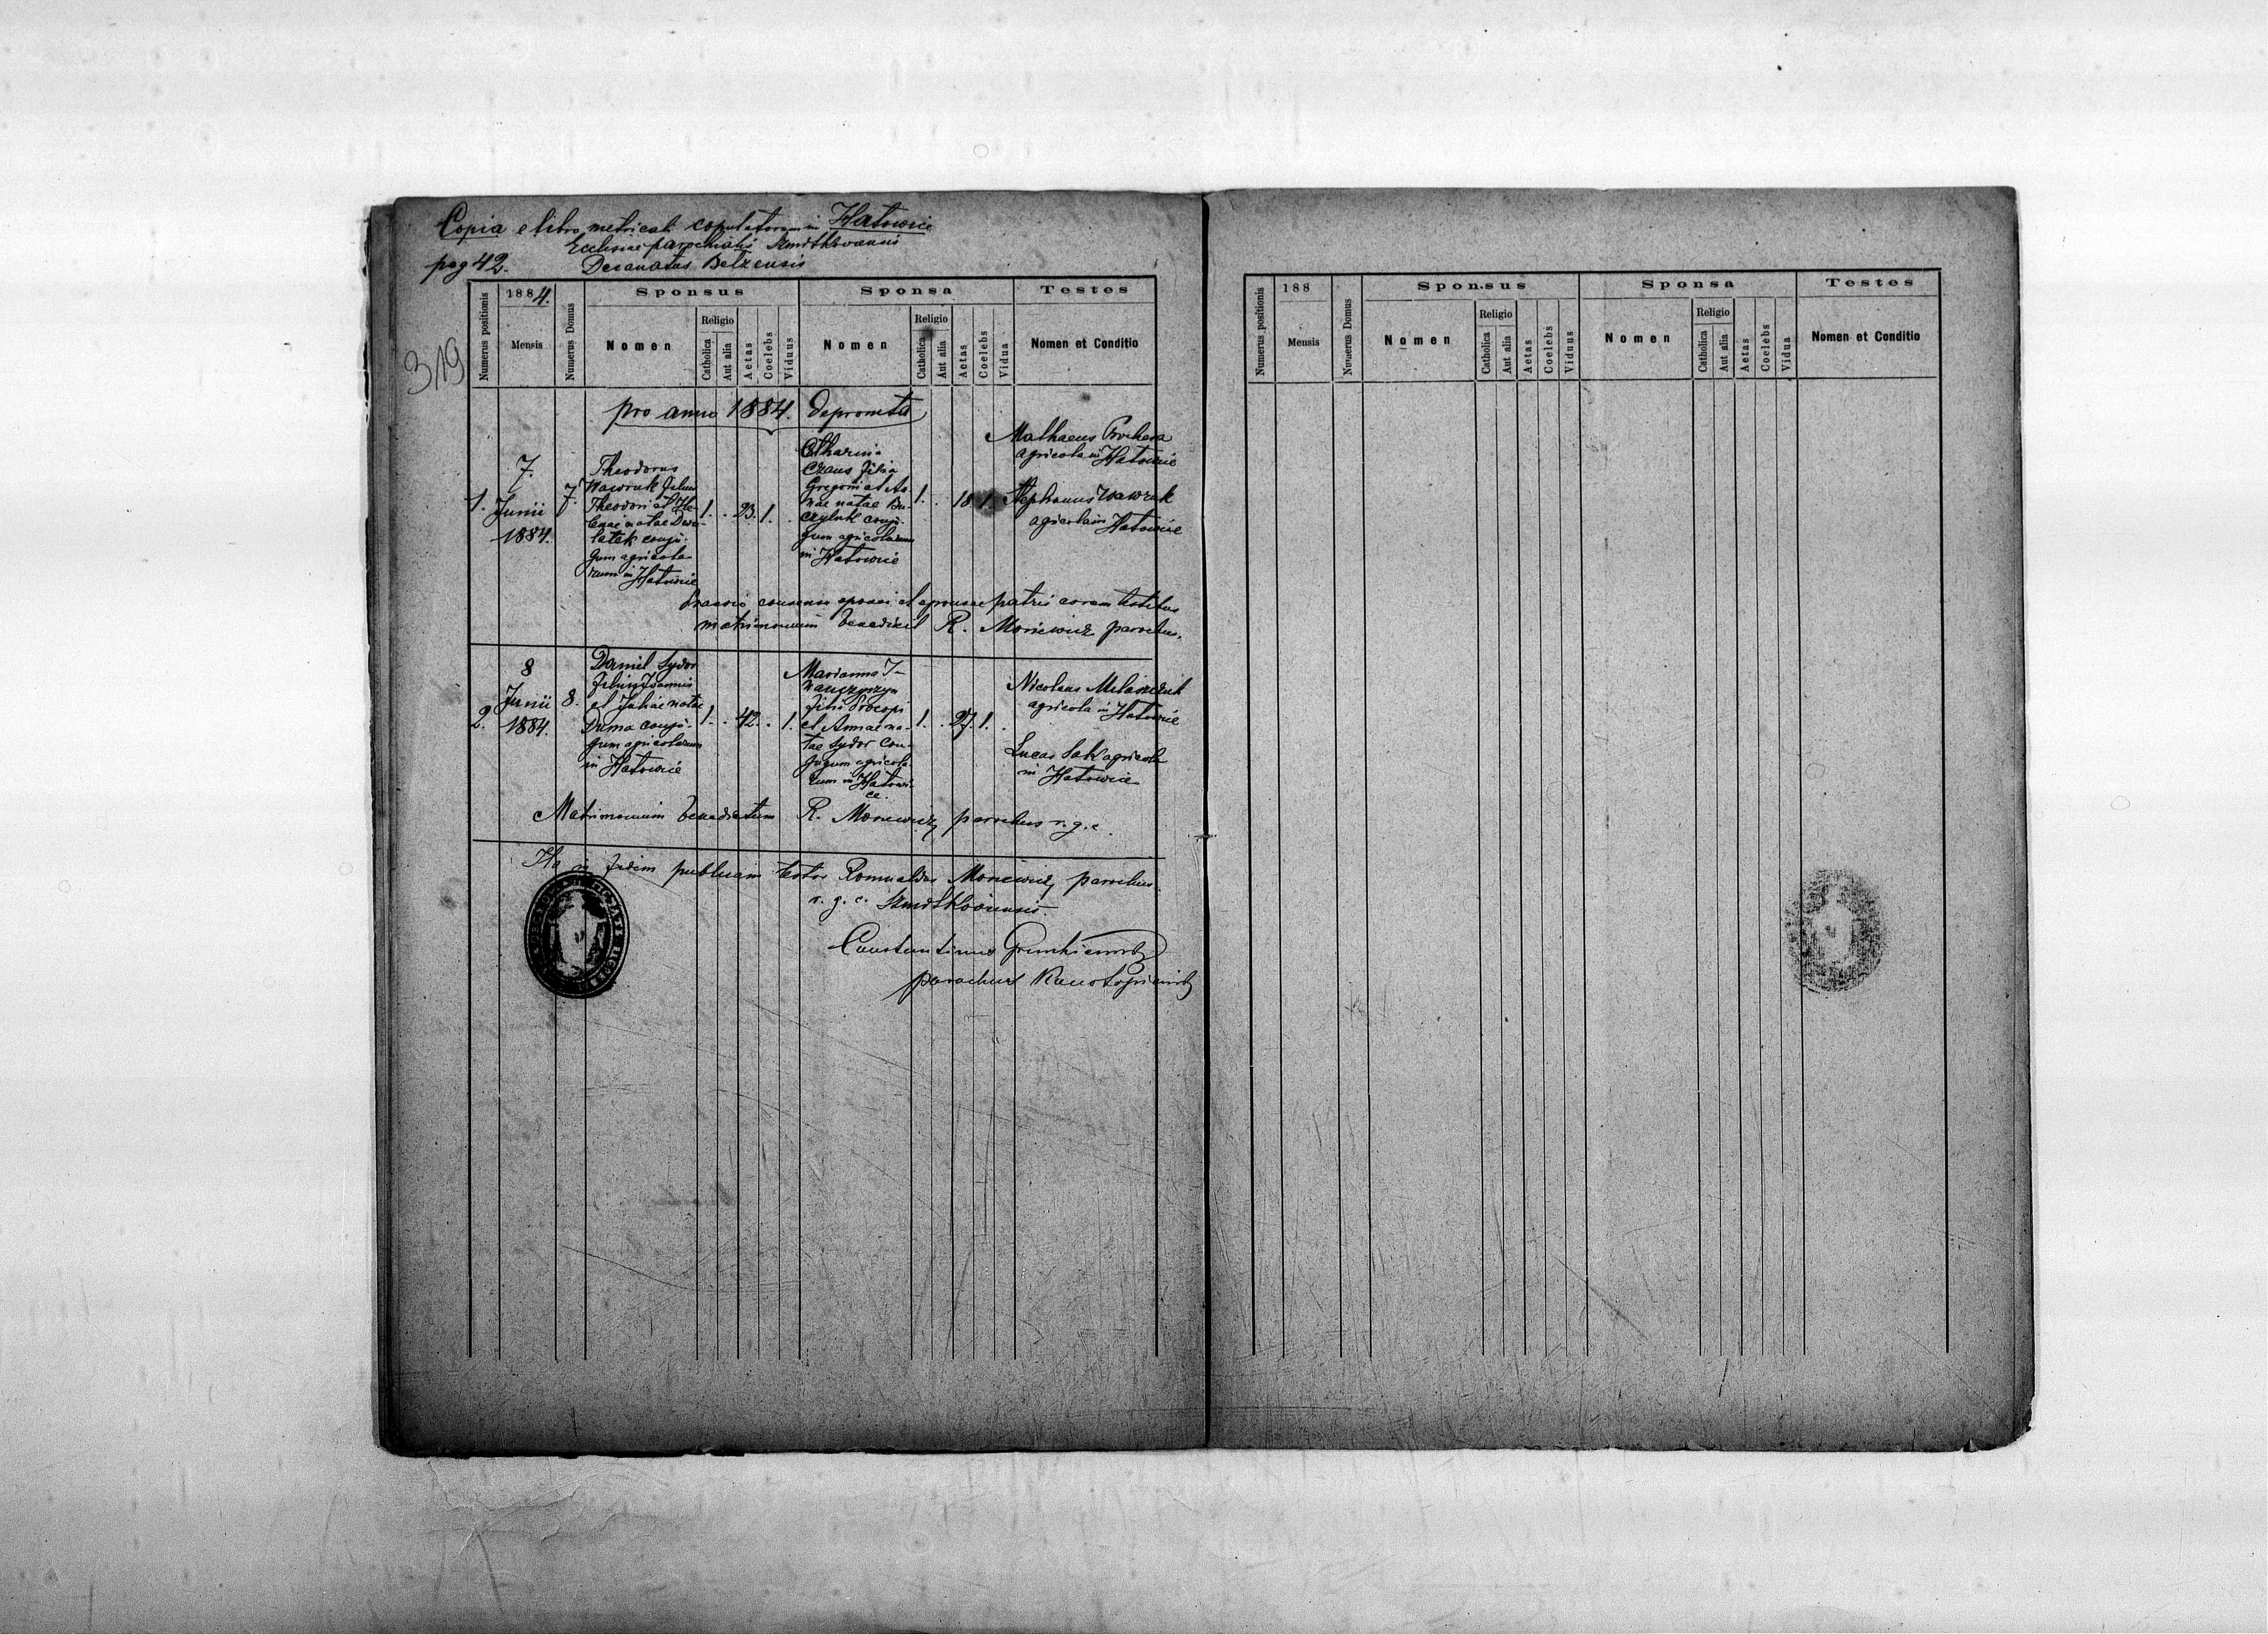 Copia e libro metricali copulatorum in Hatowice
Ecclesiae parochialis Szmitkoviensis
pag 42. Decanatus Belzensis
319
Numerus positionis
1884.
Mensis
Numerus Domus
Sponsus
Nomen
Religio
Catholica
Aut alia
Aetas
Coelebs
Viduus
Sponsa
Nomen
Religio
Catholica
Aut alia
Aetas
Coelebs
Vidua
Testes
Nomen et Conditio
pro anno 1884. deprompta
1.
7.
Junii
1884.
7.
Theodorus
Wawruk filius
Theodori et He-
lenae natae
conju-
gum agricola-
rum in Hatowice
1. . 23. 1. .
Catharina
Czaus filia
Gregorii et An-
nae natae
conju-
gum agricolarum
in Hatowice
1. . 18 1.
Mathaeus Prochera
agricola in Hatowice
Stephanus Wawruk
agricola in Hatowice
consensu sponsi et sponsae patris coram testibus
matrimonium benedixit R. Moncewicz parochus.
2.
8
Junii
1884.
8.
Daniel Sydor
filius Joannis
et Juliae natae
Duma conju-
gum agricolarum
in Hatowice
1. . 42. . 1.
Marianna I-
wanczyszyn
filia Procopi
et Annae na-
tae Sydor con-
jugum agricola-
rum in Hatowi-
ce.
1. . 27. 1. .
Nicolaus
agricola in Hatowice
Lucas Sak agricola
in Hatowice
Matrimonium benedictum R. Moncewicz parochus r. g. c.
Ita in fidem publicam testor Romualdus Moncewicz parochus
r. g. c. Szmitkoviensis.
Constantinus
parochus
188
Numerus positionis
Mensis
Numerus Domus
Sponsus
Nomen
Religio
Catholica
Aut alia
Aetas
Coelebs
Viduus
Sponsa
Nomen
Religio
Catholica
Aut alia
Aetas
Coelebs
Vidua
Testes
Nomen et Conditio